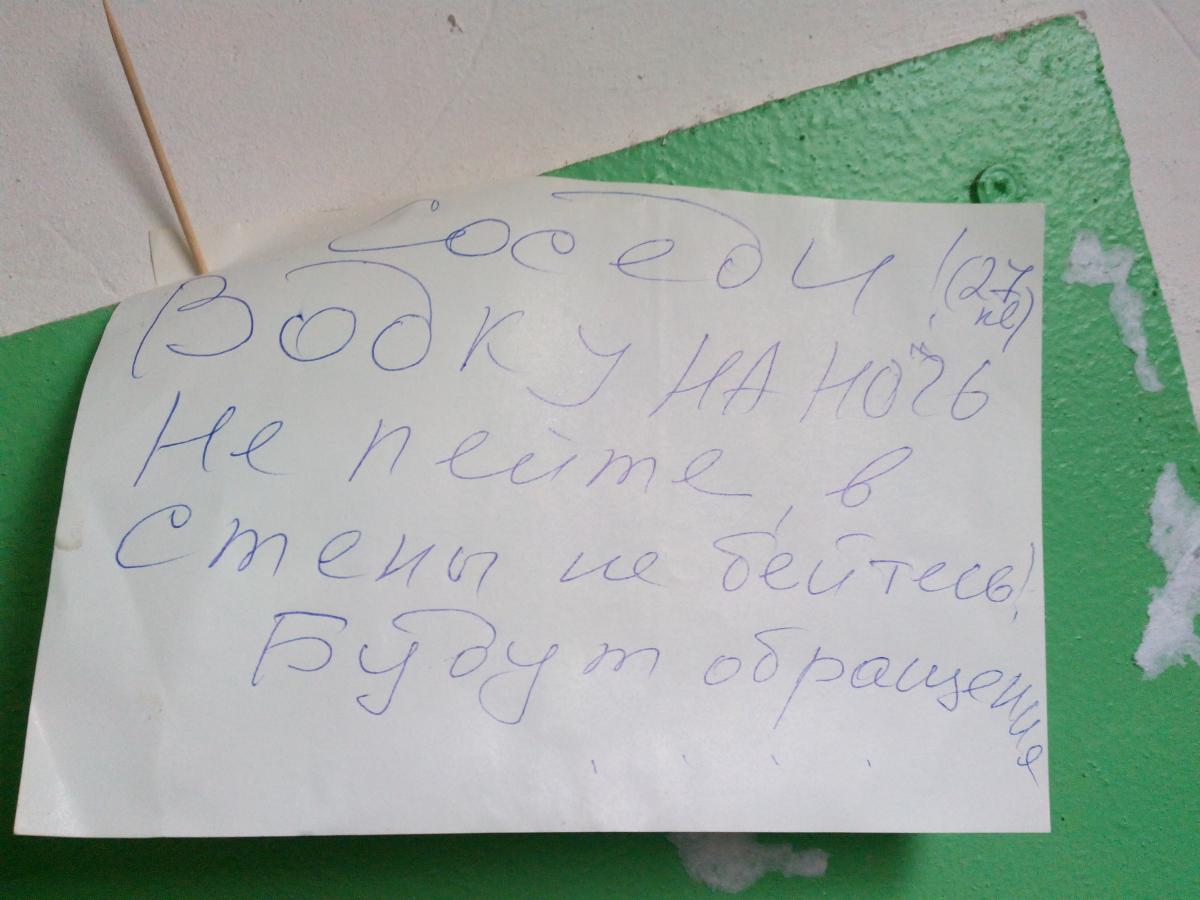 Соседи! (27
Водку НА НОЧЬ
Не пейте, в
Стены не бейтесь!
Будут обращения
. . . .